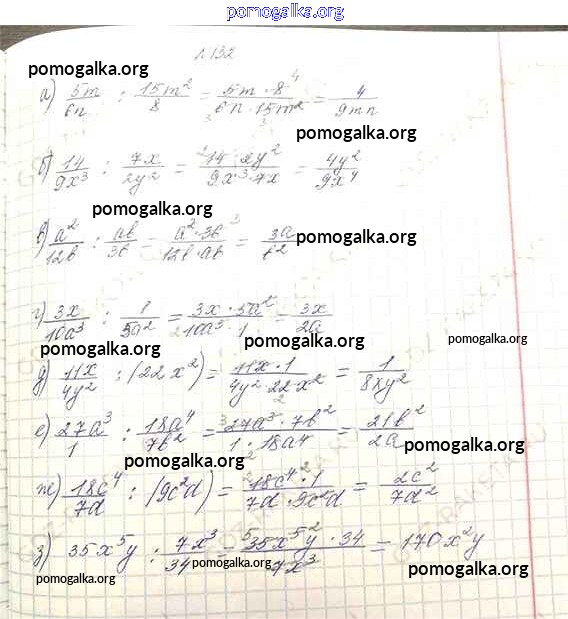 pomogalka.org
№132
pomogalka.org
а) 5m/6n : 15m²/8 = 5m · 8⁴/6n · 15m² = 4/9mn
pomogalka.org
б) 14/9x³ : 7x/2y² = 14 · 2y²/9x³ · 7x = 4y²/9x⁴
pomogalka.org
в) a²/12b : ab/3b = a² · 3b/12b · ab = 3a/b²
pomogalka.org
г) 3x/10a³ : 1/5a² = 3x · 5a²/10a³ · 1 = 3x/2a
pomogalka.org
pomogalka.org
pomogalka.org
д) 11x/4y² : (22x²) = 11x · 1/4y² · 22x² = 1/8xy²
pomogalka.org
е) 27a³/1 : 18a⁴/7b² = 27a³ · 7b²/1 · 18a⁴ = 21b²/2a
pomogalka.org
pomogalka.org
ж) 18c⁴/7d : (9c²d) = 18c⁴ · 1/7d · 9c²d = 2c²/7d²
з) 35x⁵y : 7x³/34 = 35x⁵y · 34/7x³ = 170x²y
pomogalka.org
pomogalka.org
pomogalka.org
pomogalka.org